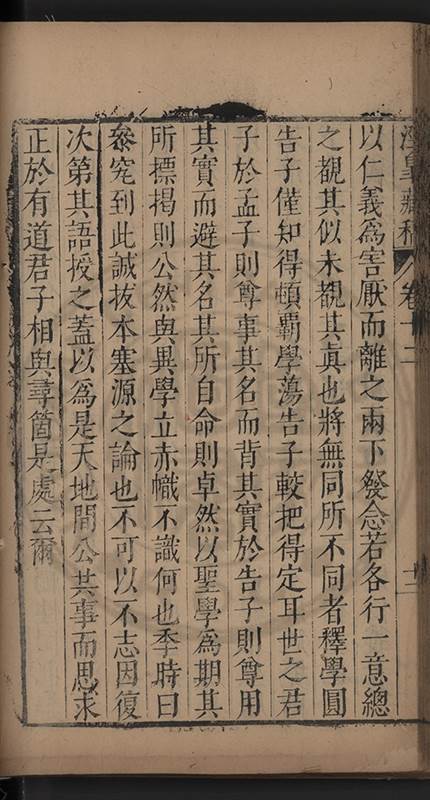 涇皐藏稿 卷十二 十二
以仁義爲害厭而離之兩下發念若各行一意總
之覩其似未覩其眞也將無同所不同者釋學圓
告子僅知得頓覇學蕩告子較把得定耳世之君
子於孟子則尊事其名而背其實於告子則尊用
其實而避其名其所自命則卓然以聖學爲期其
所標揭則公然與異學立赤幟不識何也季時曰
叅究到此誠拔本塞源之論也不可以不志因復
次第其語授之蓋以爲是天地間公共事而思求
正於有道君子相與尋箇是處云爾